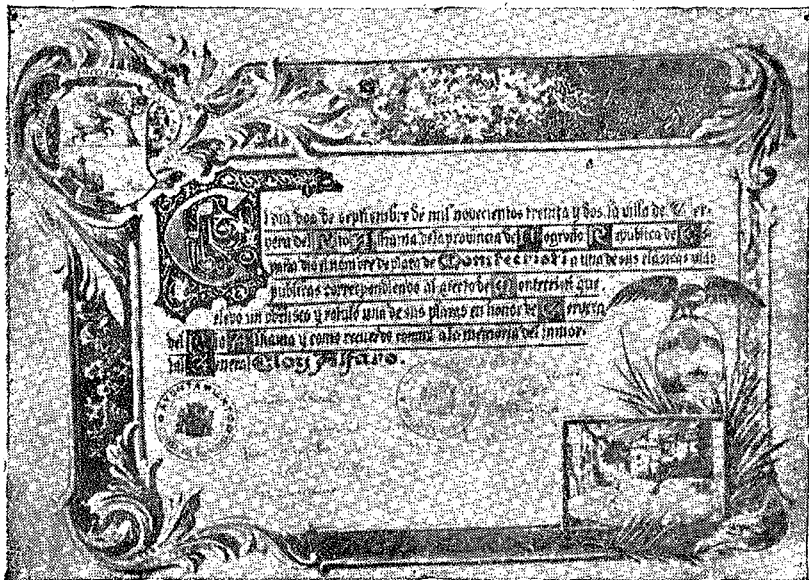 El dia dos de septiembre de mil novecientos treinta y dos la villa de Cer-
vera del Rio Alhama de la provincia de Logroño Republica de Es-
paña dio el nombre de plaza de Montecristi a una de sus clasicas vias
publicas correspondiendo al afecto de Montecristi que
elevo un obelisco y rotulo una de sus plazas en honor de Cervera
del Rio Alhama y como recuerdo comun a la memoria del inmor-
tal General Eloy Alfaro.
AYUNTAMIENTO